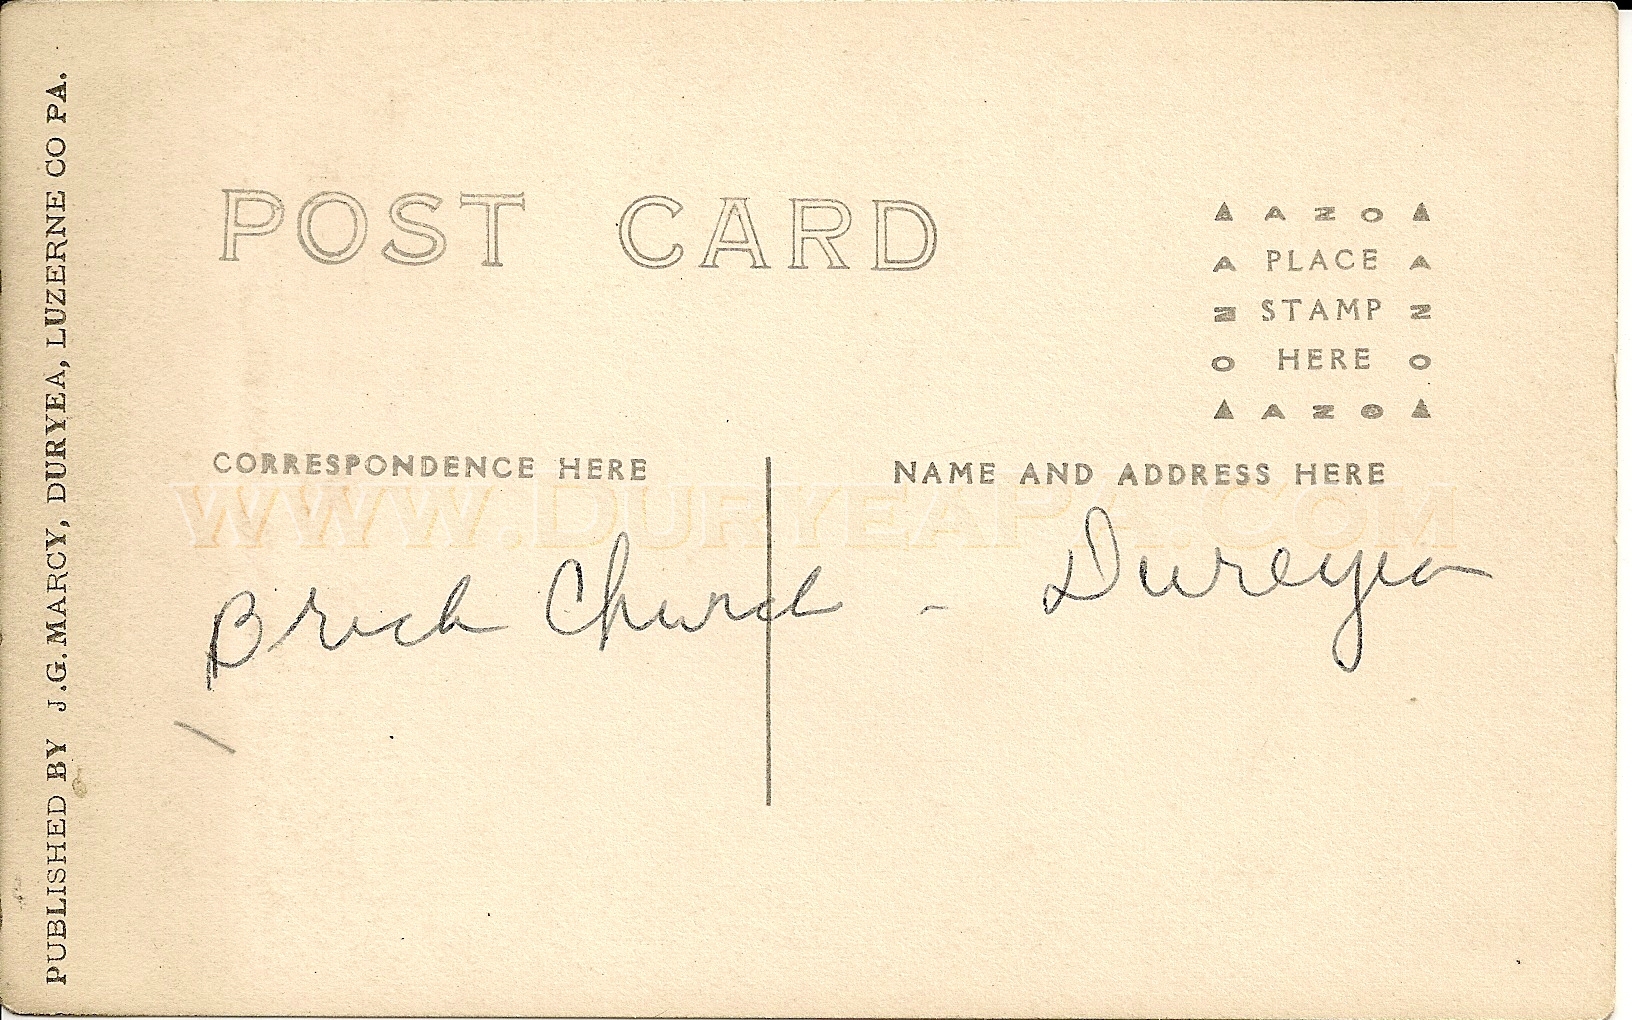 PUBLISHED BY J.G. MARCY, DURYEA, LUZERNE CO PA.
POST CARD
▲ A Z O ▲
A PLACE A
Z STAMP Z
O HERE O
▲ A Z O ▲
CORRESPONDENCE HERE
NAME AND ADDRESS HERE
WWW.DURYEAPA.COM
Brick Church - Dureyea